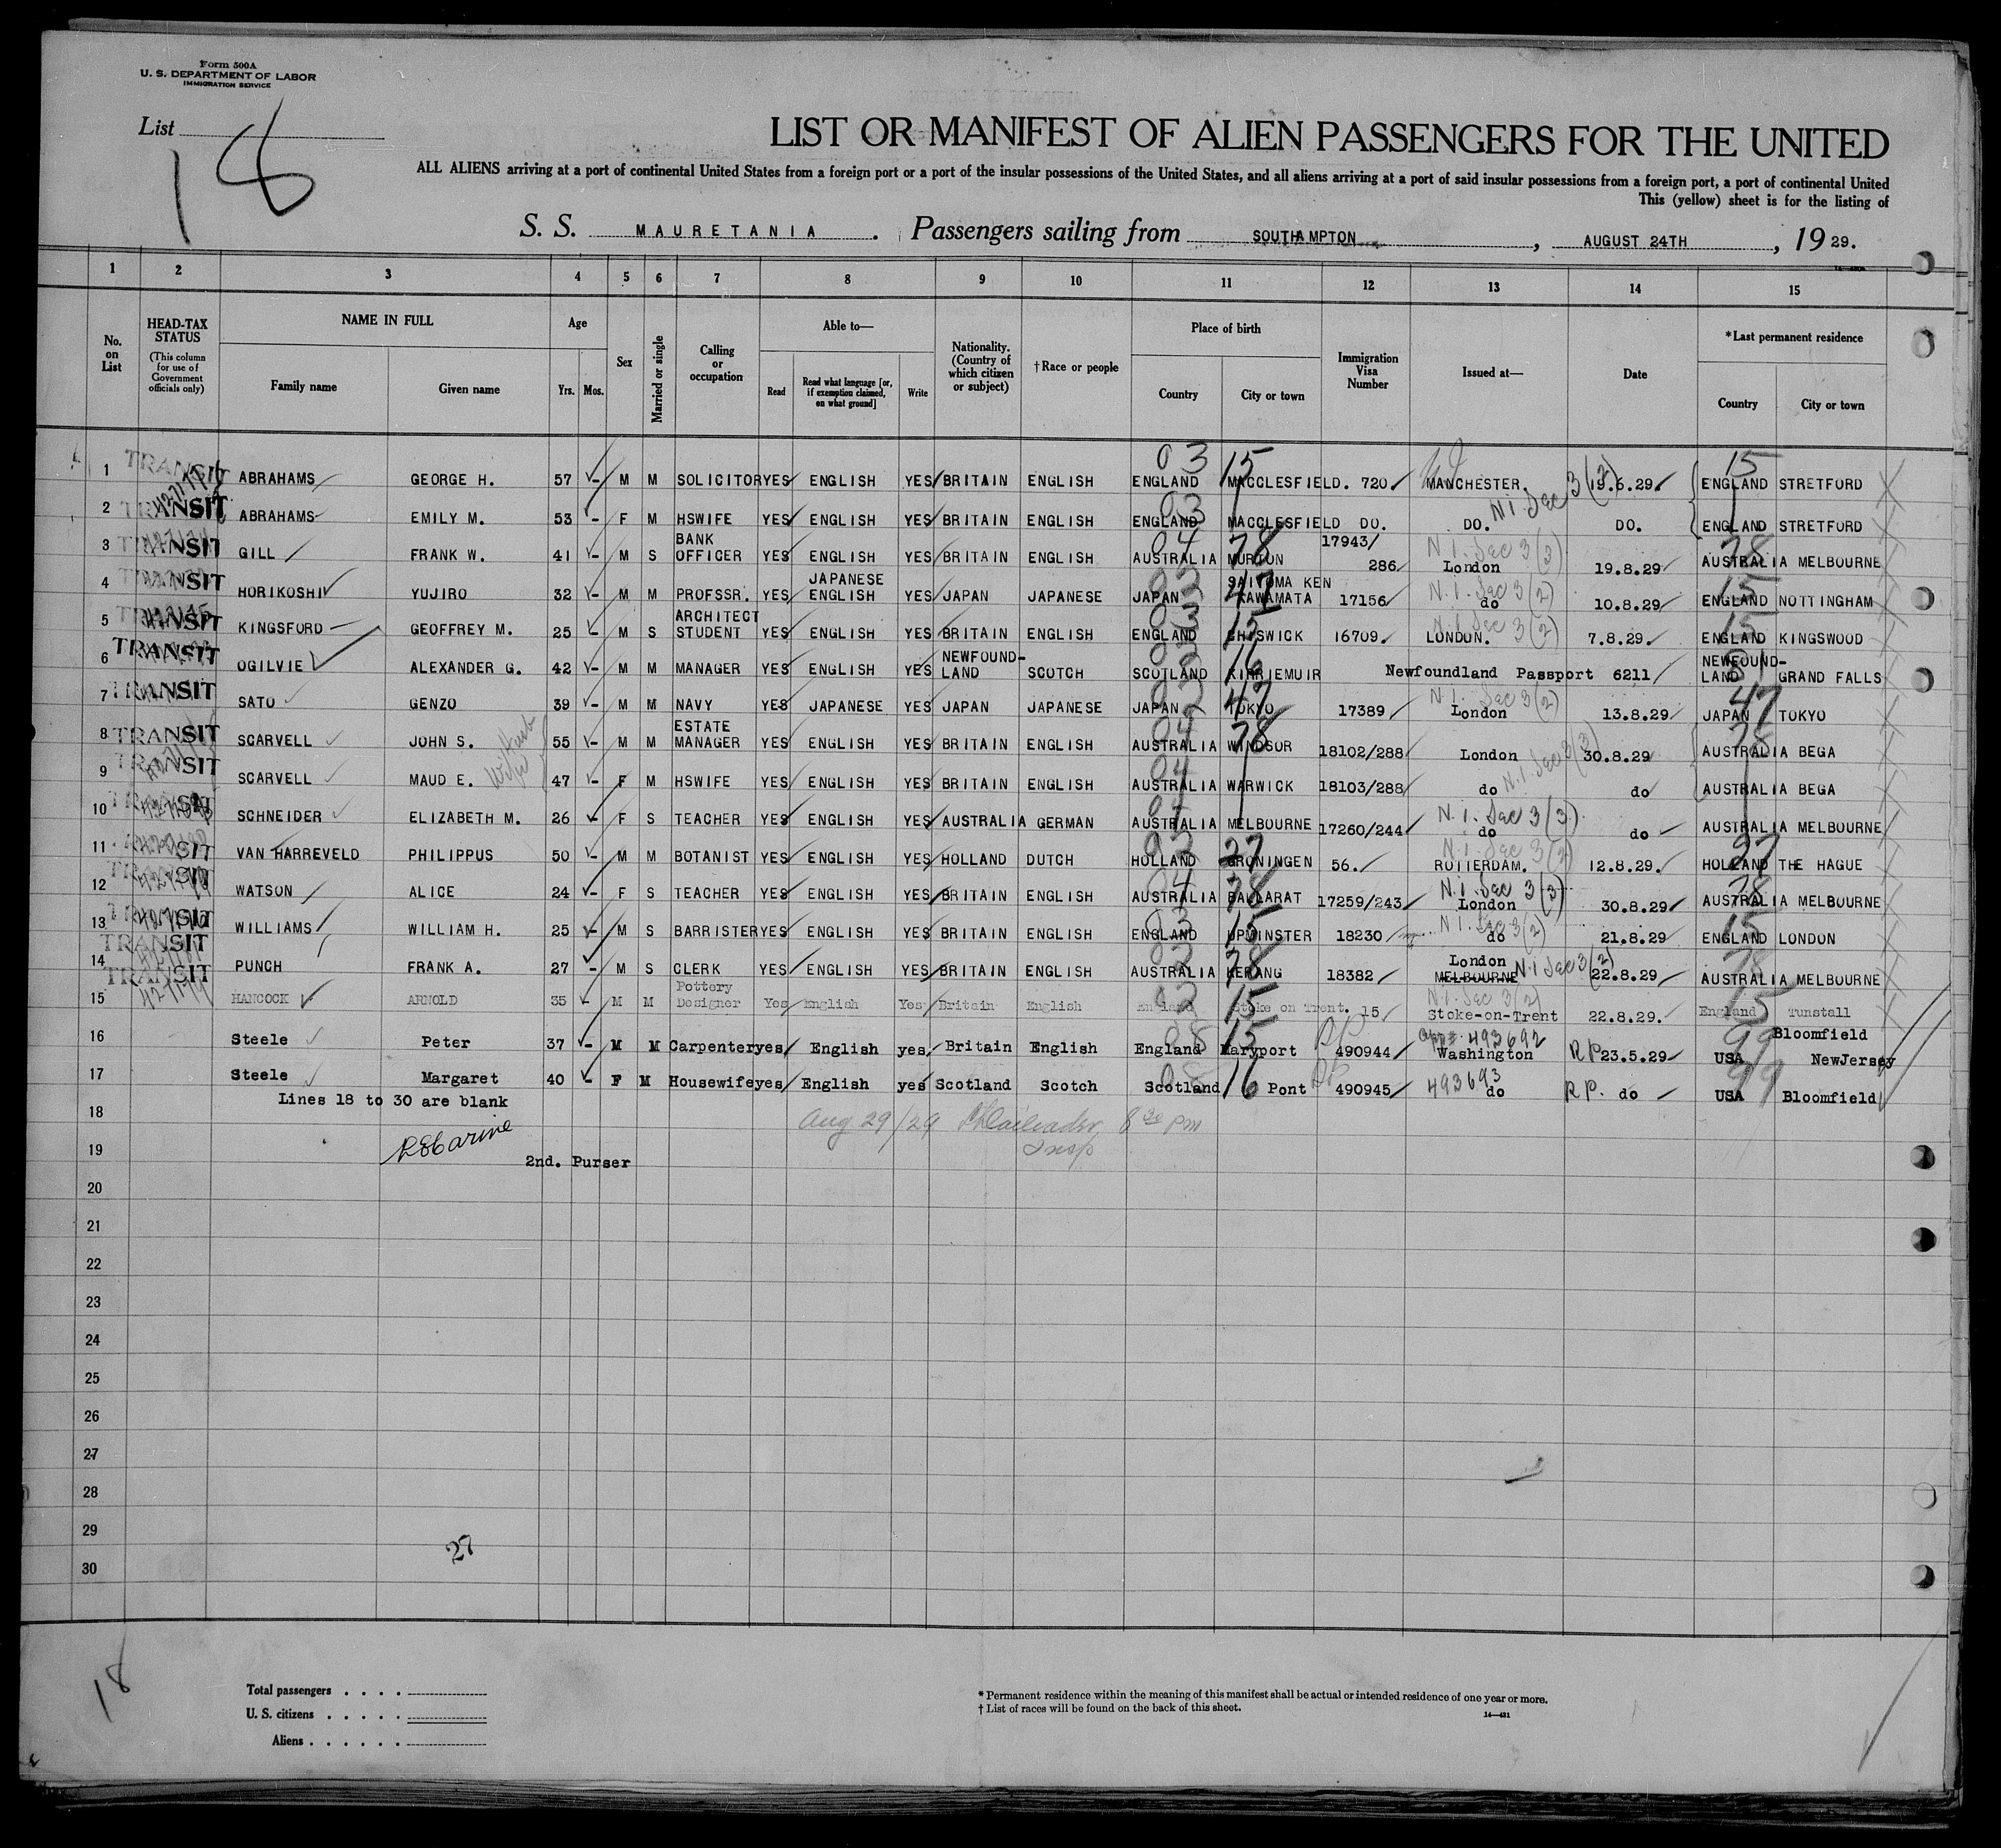 Form 500A
U. S. DEPARTMENT OF LABOR
IMMIGRATION SERVICE
List 18
LIST OR MANIFEST OF ALIEN PASSENGERS FOR THE UNITED
ALL ALIENS arriving at a port of continental United States from a foreign port or a port of the insular possessions of the United States, and all aliens arriving at a port of said insular possessions from a foreign port, a port of continental United
This (yellow) sheet is for the listing of
S. S. MAURETANIA. Passengers sailing from SOUTHAMPTON, AUGUST 24TH, 1929.
1 2 3 4 5 6 7 8 9 10 11 12 13 14 15
No. on List
HEAD-TAX STATUS (This column for use of Government officials only)
NAME IN FULL Family name Given name
Age Yrs. Mos.
Sex
Married or single
Calling or occupation
Able to— Read Read what language [or, if exemption claimed, on what ground] Write
Nationality. (Country of which citizen or subject)
† Race or people
Place of birth Country City or town
Immigration Visa Number
Issued at—
Date
*Last permanent residence Country City or town
1 TRANSIT ABRAHAMS GEORGE H. 57 M M SOLICITOR YES ENGLISH YES BRITAIN ENGLISH 03 ENGLAND 15 MACCLESFIELD. 720. MANCHESTER. 19.6.29. 15 ENGLAND STRETFORD
2 TRANSIT ABRAHAMS EMILY M. 53 F M HSWIFE YES ENGLISH YES BRITAIN ENGLISH 03 ENGLAND MACCLESFIELD DO. DO. N.I. Sec 3(2) DO. ENGLAND STRETFORD
3 TRANSIT GILL FRANK W. 41 M S BANK OFFICER YES ENGLISH YES BRITAIN ENGLISH 04 AUSTRALIA 78 MURTON 17943/286 N.I. Sec 3(3) London 19.8.29 78 AUSTRALIA MELBOURNE
4 TRANSIT HORIKOSHI YUJIRO 32 M M PROFSSR. YES JAPANESE ENGLISH YES JAPAN JAPANESE JAPAN SAITOMA KEN 47 KAWAMATA 17156 N.I. Sec 3(2) do 10.8.29 15 ENGLAND NOTTINGHAM
5 TRANSIT KINGSFORD GEOFFREY M. 25 M S ARCHITECT STUDENT YES ENGLISH YES BRITAIN ENGLISH 03 ENGLAND 15 CHISWICK 16709. N.I. Sec 3(2) LONDON. 7.8.29. 15 ENGLAND KINGSWOOD
6 TRANSIT OGILVIE ALEXANDER G. 42 M M MANAGER YES ENGLISH YES NEWFOUND-LAND SCOTCH SCOTLAND 16 KIRRIEMUIR Newfoundland Passport 6211 NEWFOUND-LAND 81 GRAND FALLS
7 TRANSIT SATO GENZO 39 M M NAVY YES JAPANESE YES JAPAN JAPANESE 02 JAPAN 47 TOKYO 17389 N.I. Sec 3(2) London 13.8.29 47 JAPAN TOKYO
8 TRANSIT SCARVELL JOHN S. 55 M M ESTATE MANAGER YES ENGLISH YES BRITAIN ENGLISH 04 AUSTRALIA 78 WINDSOR 18102/288 London 30.8.29 78 AUSTRALIA BEGA
9 TRANSIT SCARVELL MAUD E. 47 F M HSWIFE YES ENGLISH YES BRITAIN ENGLISH 04 AUSTRALIA WARWICK 18103/288 do N.I. Sec 3(3) do AUSTRALIA BEGA
10 TRANSIT SCHNEIDER ELIZABETH M. 26 F S TEACHER YES ENGLISH YES AUSTRALIA GERMAN 04 AUSTRALIA MELBOURNE 17260/244 N.I. Sec 3(3). do do AUSTRALIA MELBOURNE
11 TRANSIT VAN HARREVELD PHILIPPUS 50 M M BOTANIST YES ENGLISH YES HOLLAND DUTCH 02 HOLLAND 27 GRONINGEN 56. ROTTERDAM. 12.8.29. 27 HOLLAND THE HAGUE
12 TRANSIT WATSON ALICE 24 F S TEACHER YES ENGLISH YES BRITAIN ENGLISH 04 AUSTRALIA 78 BALLARAT 17259/243 N.I. Sec 3(3) London 30.8.29 78 AUSTRALIA MELBOURNE
13 TRANSIT WILLIAMS WILLIAM H. 25 M S BARRISTER YES ENGLISH YES BRITAIN ENGLISH 03 ENGLAND 15 UPMINSTER 18230 N.I. Sec 3(2) do 21.8.29 15 ENGLAND LONDON
14 TRANSIT PUNCH FRANK A. 27 M S CLERK YES ENGLISH YES BRITAIN ENGLISH 02 AUSTRALIA 78 KERANG 18382 London MELBOURNE N.I Sec 3(2) 22.8.29 78 AUSTRALIA MELBOURNE
15 TRANSIT HANCOCK ARNOLD 35 M M Pottery Designer Yes English Yes Britain English 02 England 15 Stoke on Trent. 15 N.I. Sec 3(2) Stoke-on-Trent 22.8.29. 15 England Tunstall
16 Steele Peter 37 M M Carpenter yes English yes. Britain English 08 England 15 Maryport RP 490944 493692 Washington RP 23.5.29 99 USA Bloomfield NewJersey
17 Steele Margaret 40 F M Housewife yes English yes Scotland Scotch 08 Scotland 16 Pont RP 490945 493693 do RP. do 99 USA Bloomfield
Lines 18 to 30 are blank
18 Aug 29/29 8 30 pm
Insp
19 2nd. Purser
20
21
22
23
24
25
26
27
28
29
27
30
18
Total passengers . . . .
U. S. citizens . . . . .
Aliens . . . . . .
* Permanent residence within the meaning of this manifest shall be actual or intended residence of one year or more.
† List of races will be found on the back of this sheet.
14—421